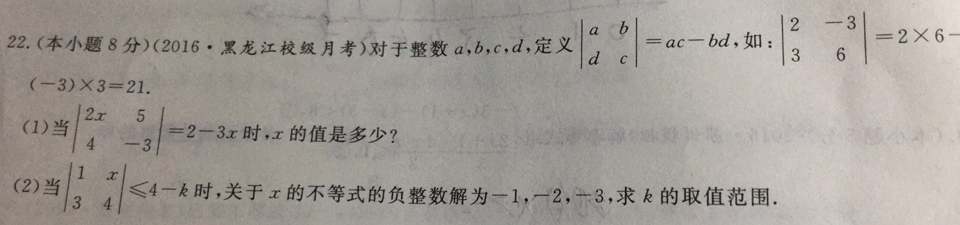 22.(本小题8分)(2016·黑龙江校级月考)对于整数a,b,c,d,定义|a b; d c|=ac-bd,如:|2 -3; 3 6|=2×6-
(-3)×3=21.
(1)当|2x 5; 4 -3|=2-3x时,x的值是多少?
(2)当|1 x; 3 4|≤4-k时,关于x的不等式的负整数解为-1,-2,-3,求k的取值范围.